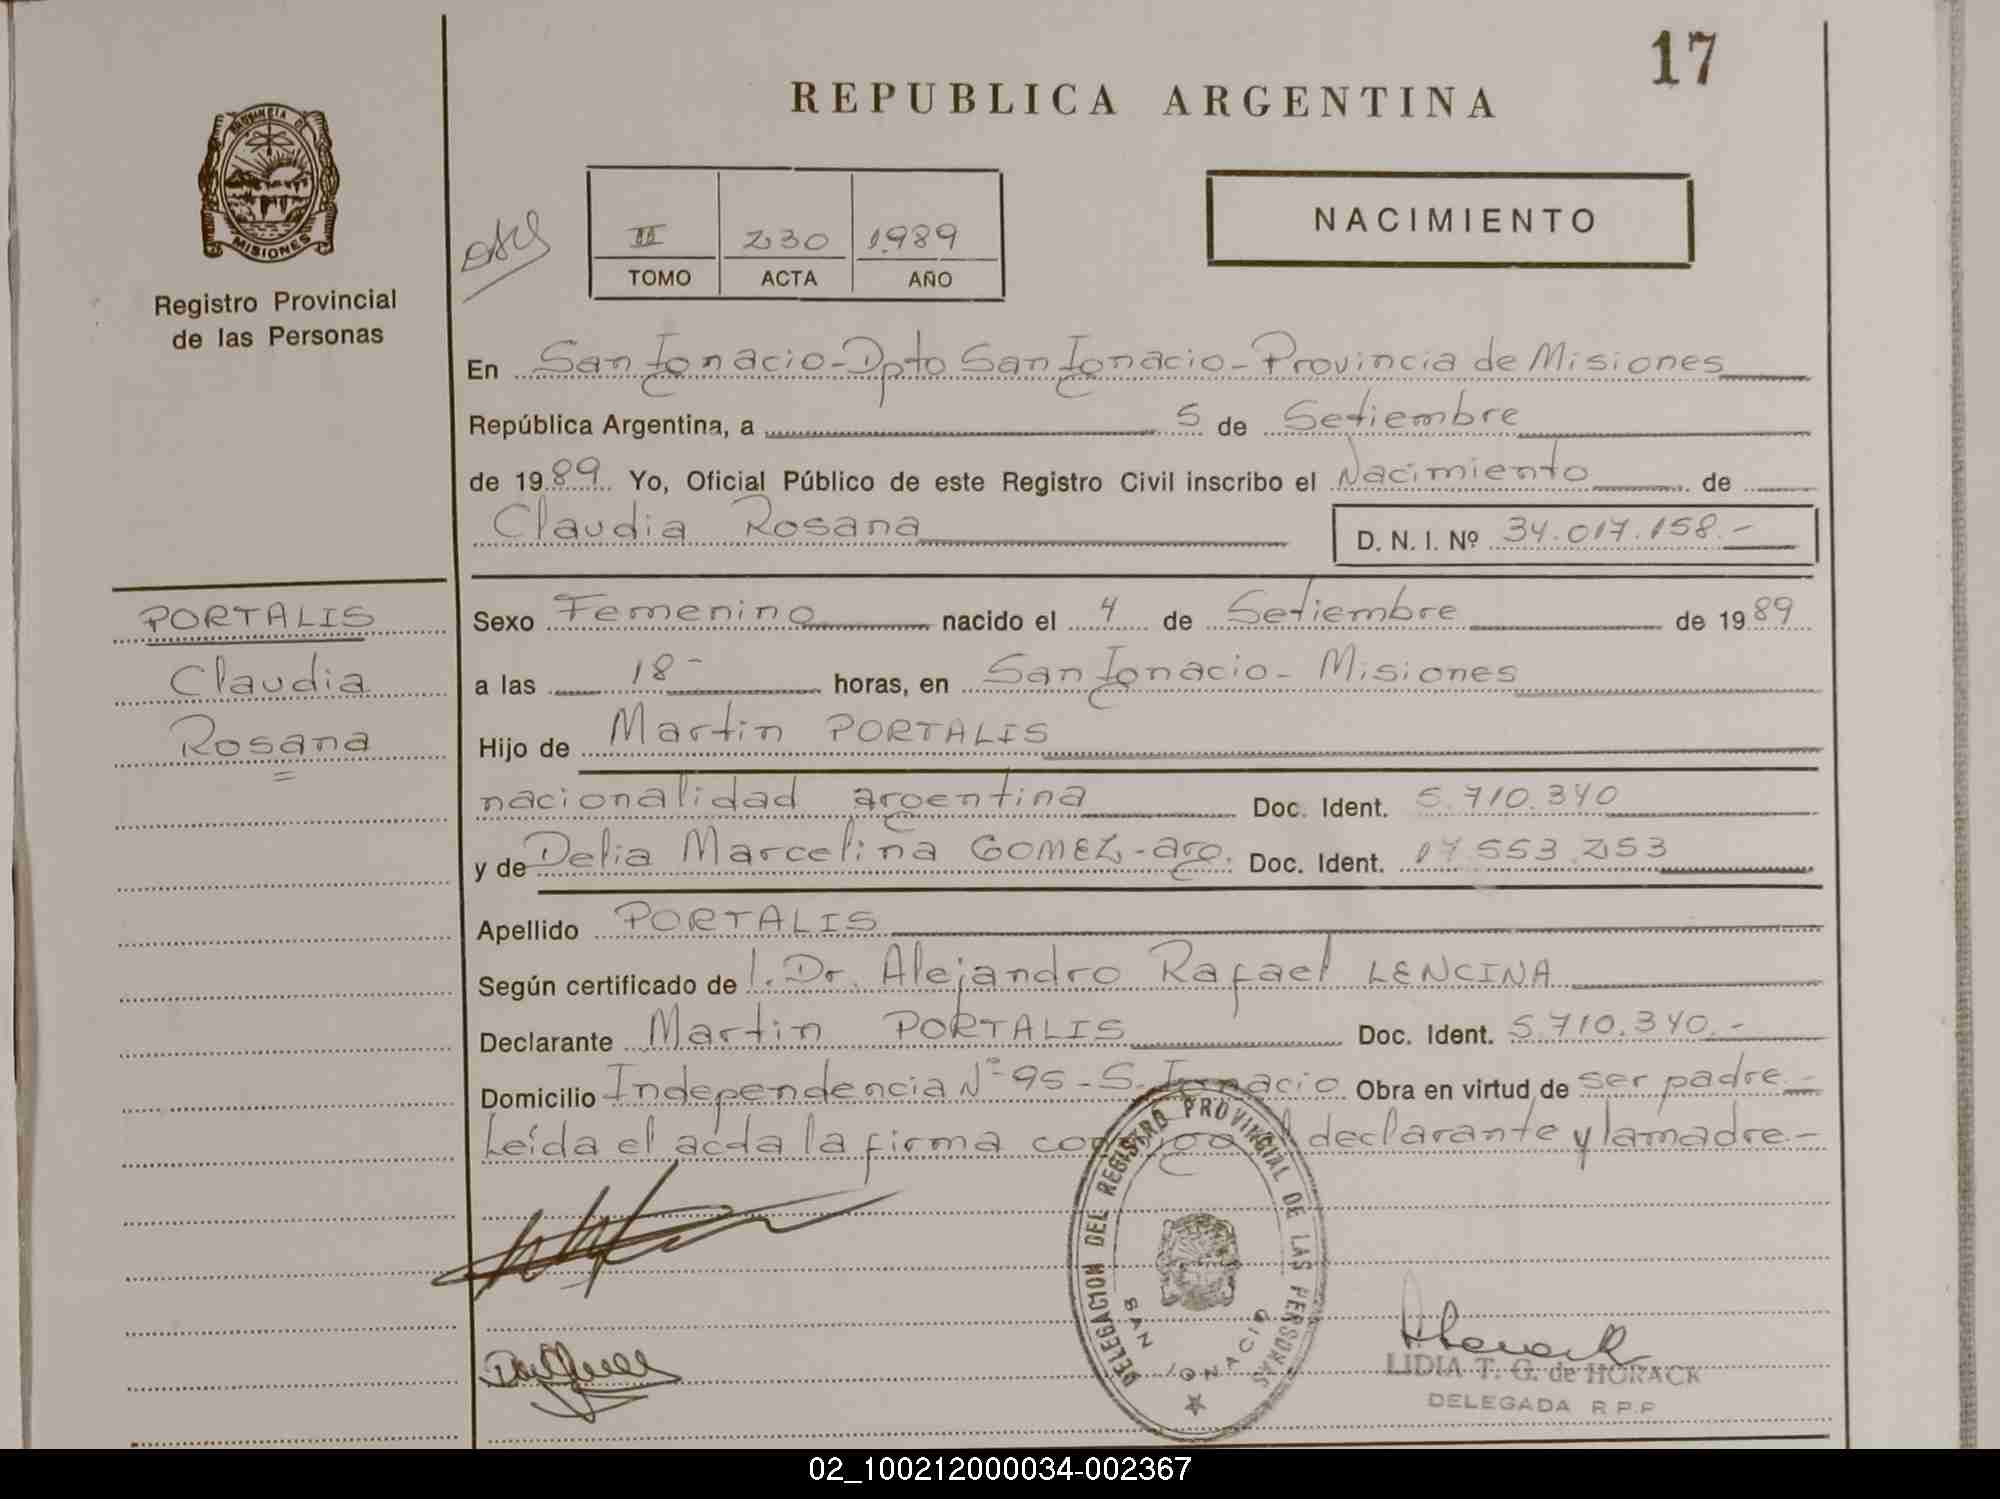 17
REPUBLICA ARGENTINA
PROVINCIA DE
MISIONES
Registro Provincial
de las Personas
II 230 1989
TOMO ACTA AÑO
NACIMIENTO
En San Ignacio - Dpto San Ignacio - Provincia de Misiones
República Argentina, a 5 de Setiembre
de 1989 Yo, Oficial Público de este Registro Civil inscribo el Nacimiento de
Claudia Rosana D. N. I. Nº 34.017.158.-
PORTALIS
Claudia
Rosana
Sexo Femenino nacido el 4 de Setiembre de 1989
a las 18- horas, en San Ignacio - Misiones
Hijo de Martin PORTALIS
nacionalidad argentina Doc. Ident. 5.710.340
y de Delia Marcelina GOMEZ - arg. Doc. Ident. 17.553.253
Apellido PORTALIS
Según certificado de l. Dr. Alejandro Rafael LENCINA
Declarante Martin PORTALIS Doc. Ident. 5.710.340.-
Domicilio Independencia Nº 95 - S. Ignacio Obra en virtud de ser padre.-
Leída el acta la firma conmigo el declarante y la madre.-
DELEGACION DEL REGISTRO PROVINCIAL DE LAS PERSONAS
SAN IGNACIO
LIDIA T. G. de HORACK
DELEGADA R.P.P
02_100212000034-002367